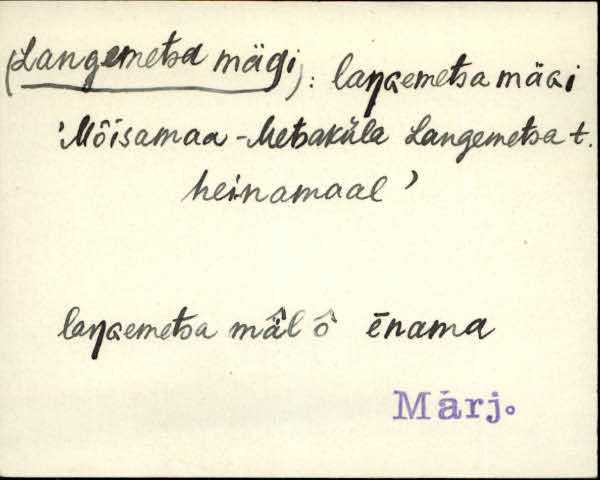 (Langemetsa mägi): laŋɢemetsa mäɢi
'Mõisamaa - Metsaküla Langemetsa t.
heinamaal'
laŋɢemetsa mäl ô ēnama
Märj.